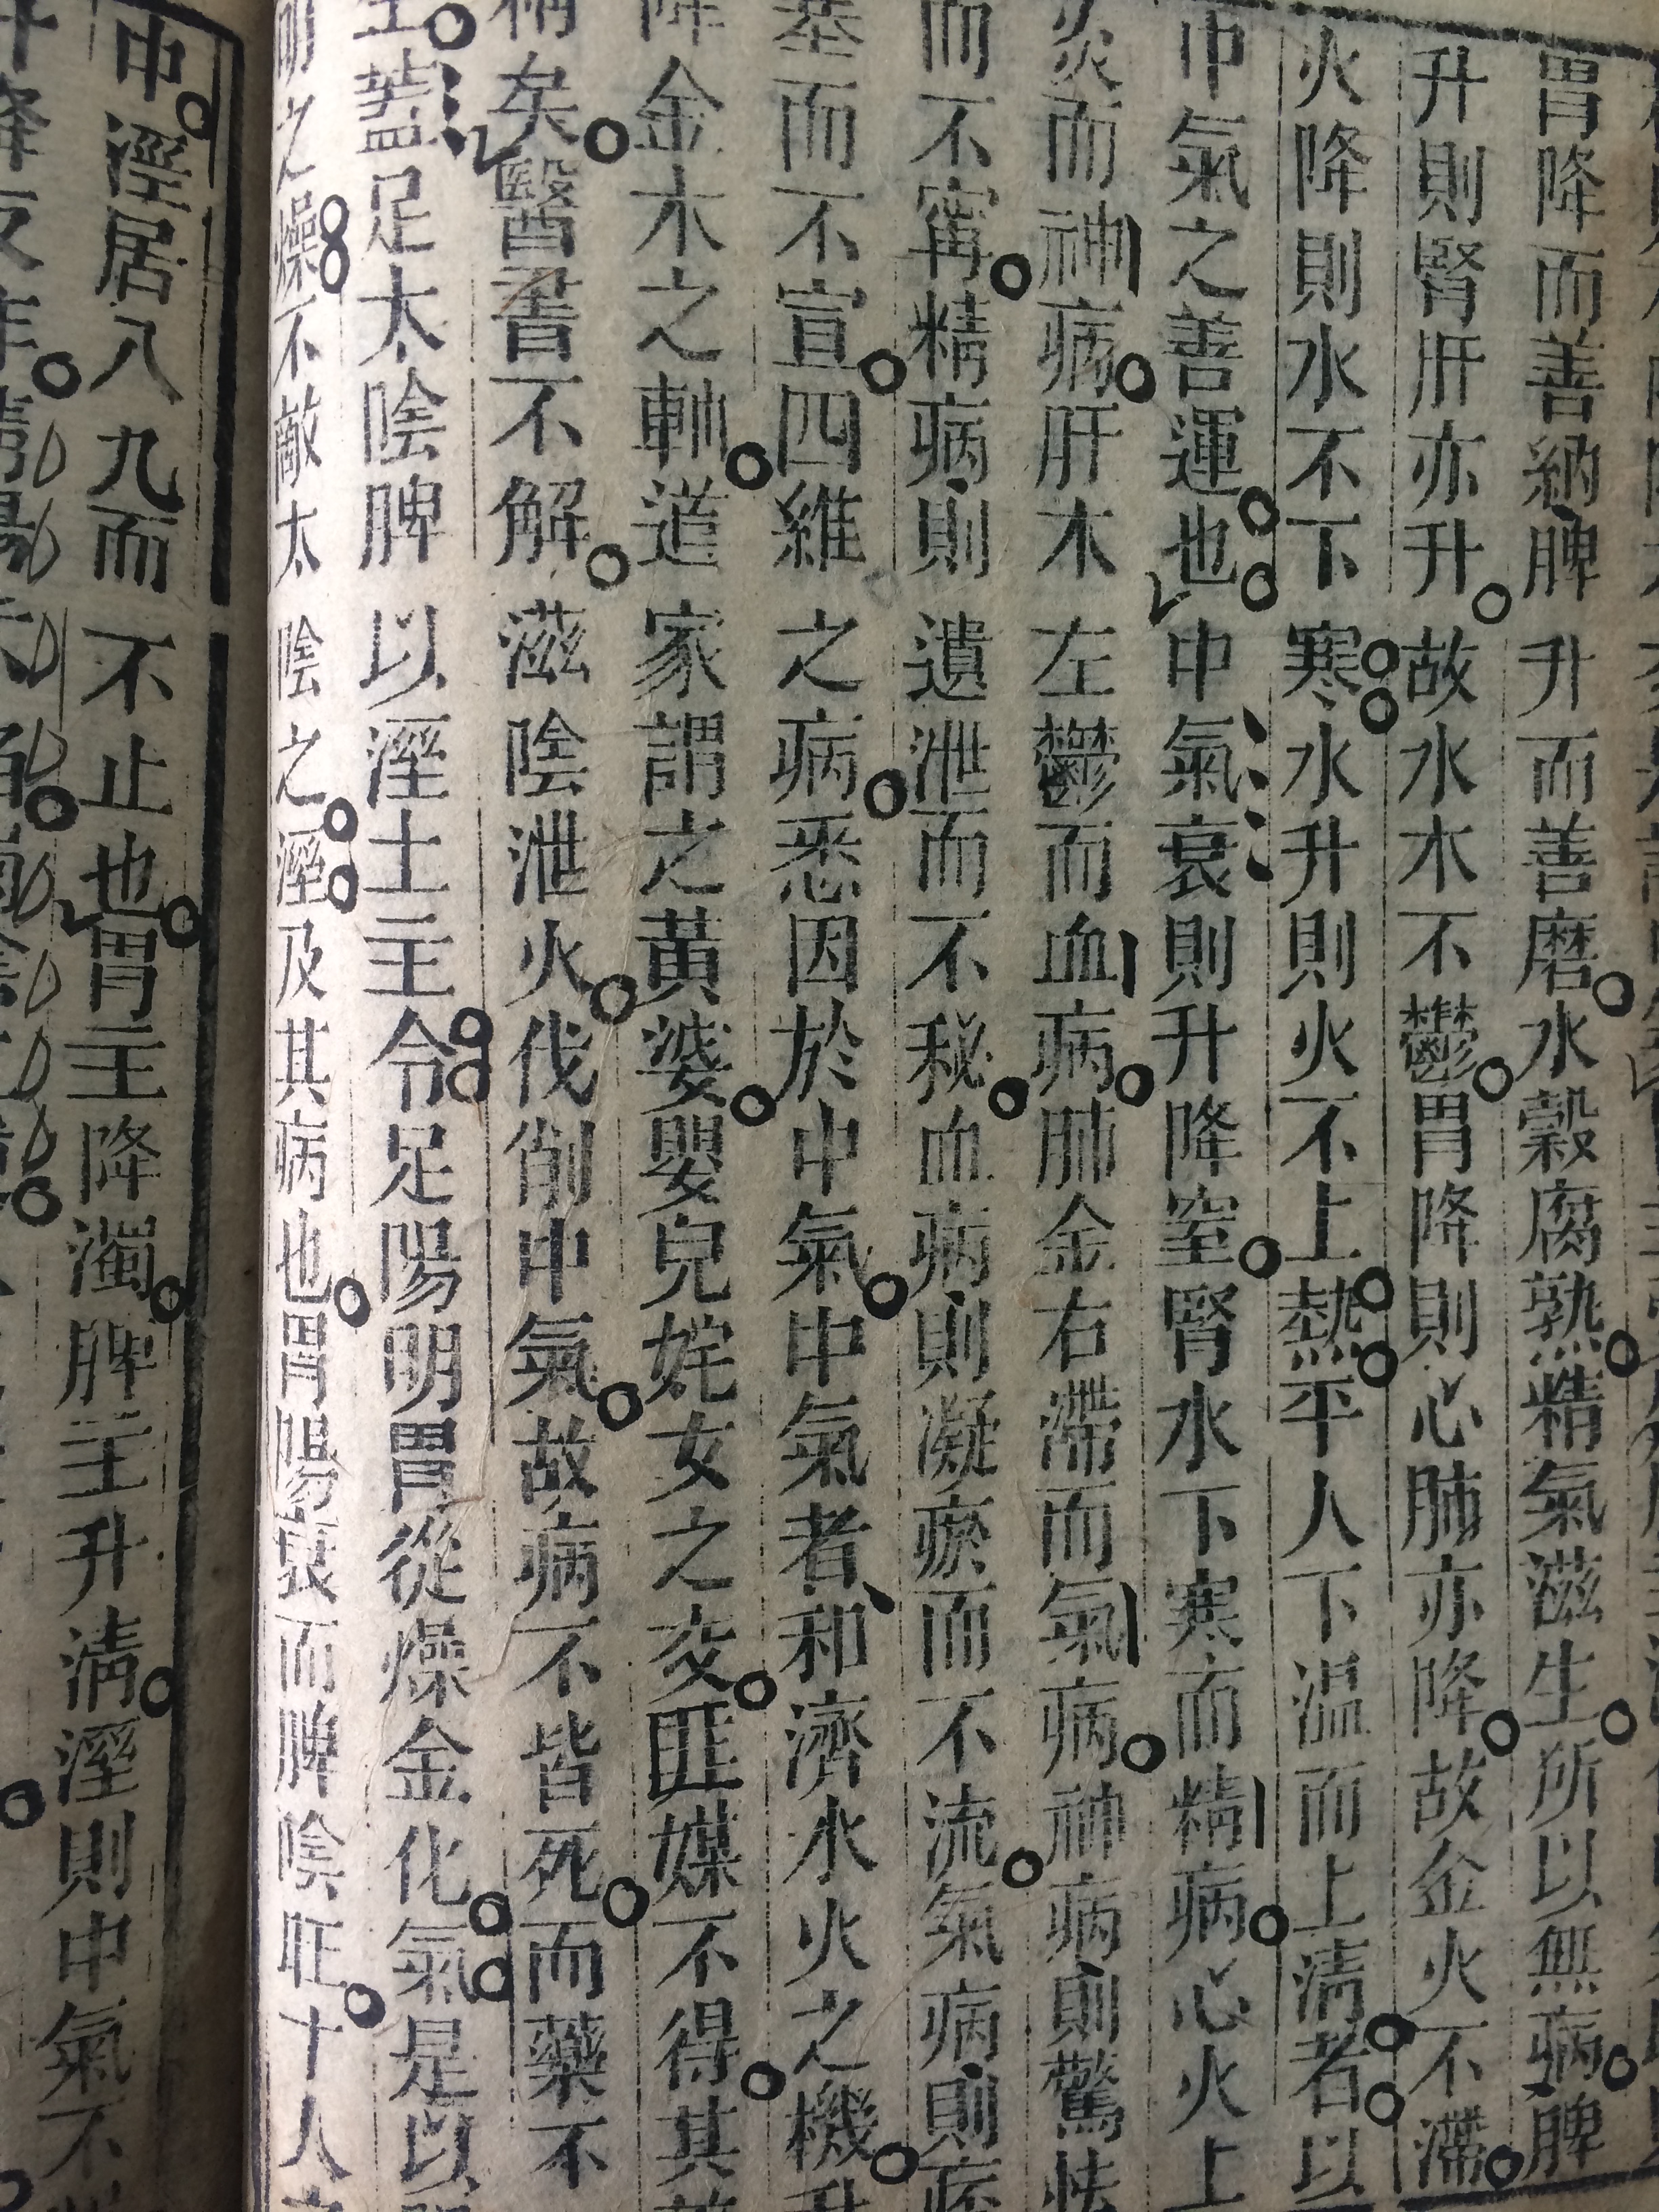 胃降而善納脾升而善磨水穀腐熟精氣滋生所以無病脾
升則腎肝亦升故水木不鬱胃降則心肺亦降故金火不滯
火降則水不下寒水升則火不上熱平人下温而上清者以
中氣之善運也中氣衰則升降窒腎水下寒而精病心火上
炎而神病肝木左鬱而血病肺金右滯而氣病神病則驚怯
而不寗精病則遺泄而不秘血病則凝瘀而不流氣病則痞
塞而不宣四維之病悉因於中氣中氣者和濟水火之機升
降金木之軸道家謂之黃婆嬰兒姹女之交匪媒不得其
稱矣醫書不解滋陰泄火伐削中氣故病不皆死而藥不
生蓋足太陰脾以溼土主令足陽明胃從燥金化氣是以陽
明之燥不敵太陰之溼及其病也胃陽衰而脾陰旺十人之
中溼居八九而不止也胃主降濁脾主升清溼則中氣不
升降反作清陽